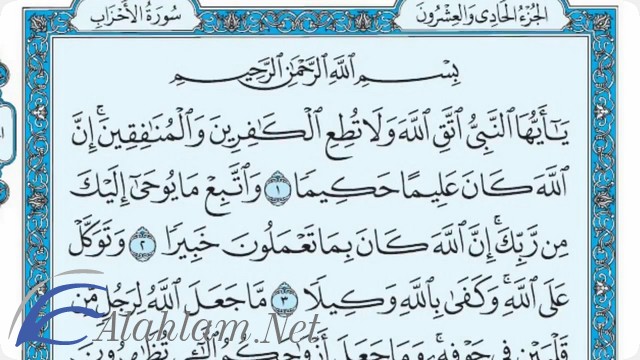 الجُزْءُ الحَادِى وَالعِشْرُونَ
سُورَةُ الأَحْزَابِ
بِسْمِ ٱللَّهِ ٱلرَّحْمَٰنِ ٱلرَّحِيمِ
يَٰٓأَيُّهَا ٱلنَّبِيُّ ٱتَّقِ ٱللَّهَ وَلَا تُطِعِ ٱلْكَٰفِرِينَ وَٱلْمُنَٰفِقِينَۚ إِنَّ
ٱللَّهَ كَانَ عَلِيمًا حَكِيمًا ١ وَٱتَّبِعْ مَا يُوحَىٰٓ إِلَيْكَ
مِن رَّبِّكَۚ إِنَّ ٱللَّهَ كَانَ بِمَا تَعْمَلُونَ خَبِيرًا ٢ وَتَوَكَّلْ
عَلَى ٱللَّهِۚ وَكَفَىٰ بِٱللَّهِ وَكِيلًا ٣ مَّا جَعَلَ ٱللَّهُ لِرَجُلٍ مِّن
قَلْبَيْنِ فِى جَوْفِهِۦۚ وَمَا جَعَلَ أَزْوَٰجَكُمُ ٱلَّٰٓـِٔى تُظَٰهِرُونَ
Alahlam.Net